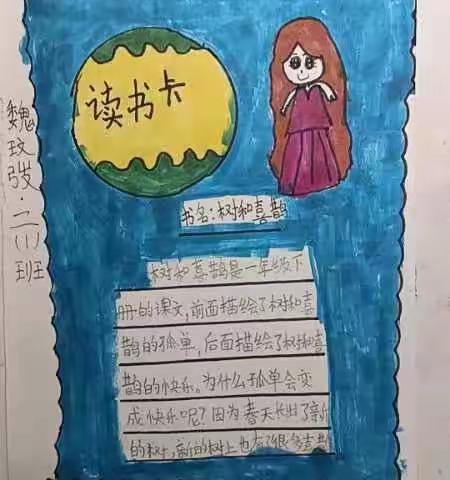 读书卡
魏玟弢·二(1)班
书名:树和喜鹊
树和喜鹊是一年级下
册的课文,前面描绘了树和喜
鹊的孤单,后面描绘了树和喜
鹊的快乐。为什么孤单会变
成快乐呢?因为春天长出了新
的树,新的树上也有了很多喜